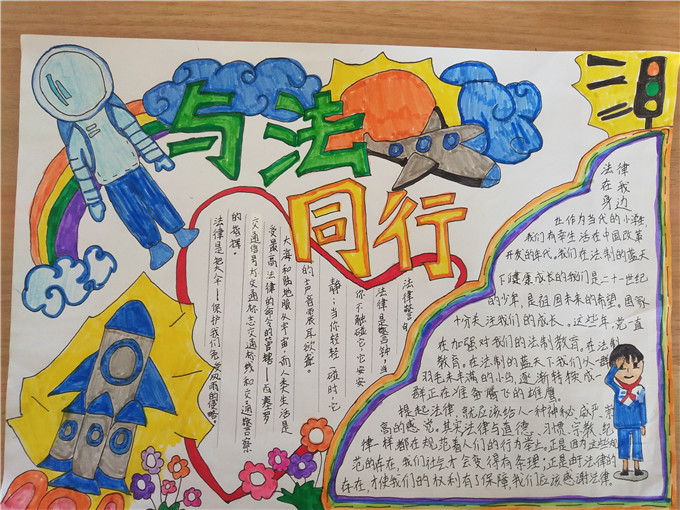 与法
同行
法律警句
法律是警钟，当
你不触碰它，它安安
静静；当你轻轻一碰时，它
的声音震耳欲聋。
大海和陆地服从宇宙，而人类生活是
受最高法律的命令的管辖——西塞罗
交通信号灯交通标志交通标线和交通警察
的指挥。
法律是把大伞——保护我们免受风雨的侵略。
法律
在我
身边
在作为当代的小学生，
我们有幸生活在中国改革
开放的年代。我们在法制的蓝天
下健康成长的我们是二十一世纪
的少年，是祖国未来的希望。国家
十分关注我们的成长。这些年，党一直
在加强对我们的法制教育。在法制
教育。在法制的蓝天下我们从一群
羽毛未丰满的小鸟，逐渐转换成一
群正在准备腾飞的雄鹰。
提起法律，就应该给人一种神秘、威严、崇
高的感觉。其实法律与道德、习惯、宗教、纪
律一样都在规范着人们的行为举止。正是因为这些规
范的存在，我们社会才会变得有条理；正是由于法律的
存在，才使我们的权利有了保障，我们应该感谢法律。